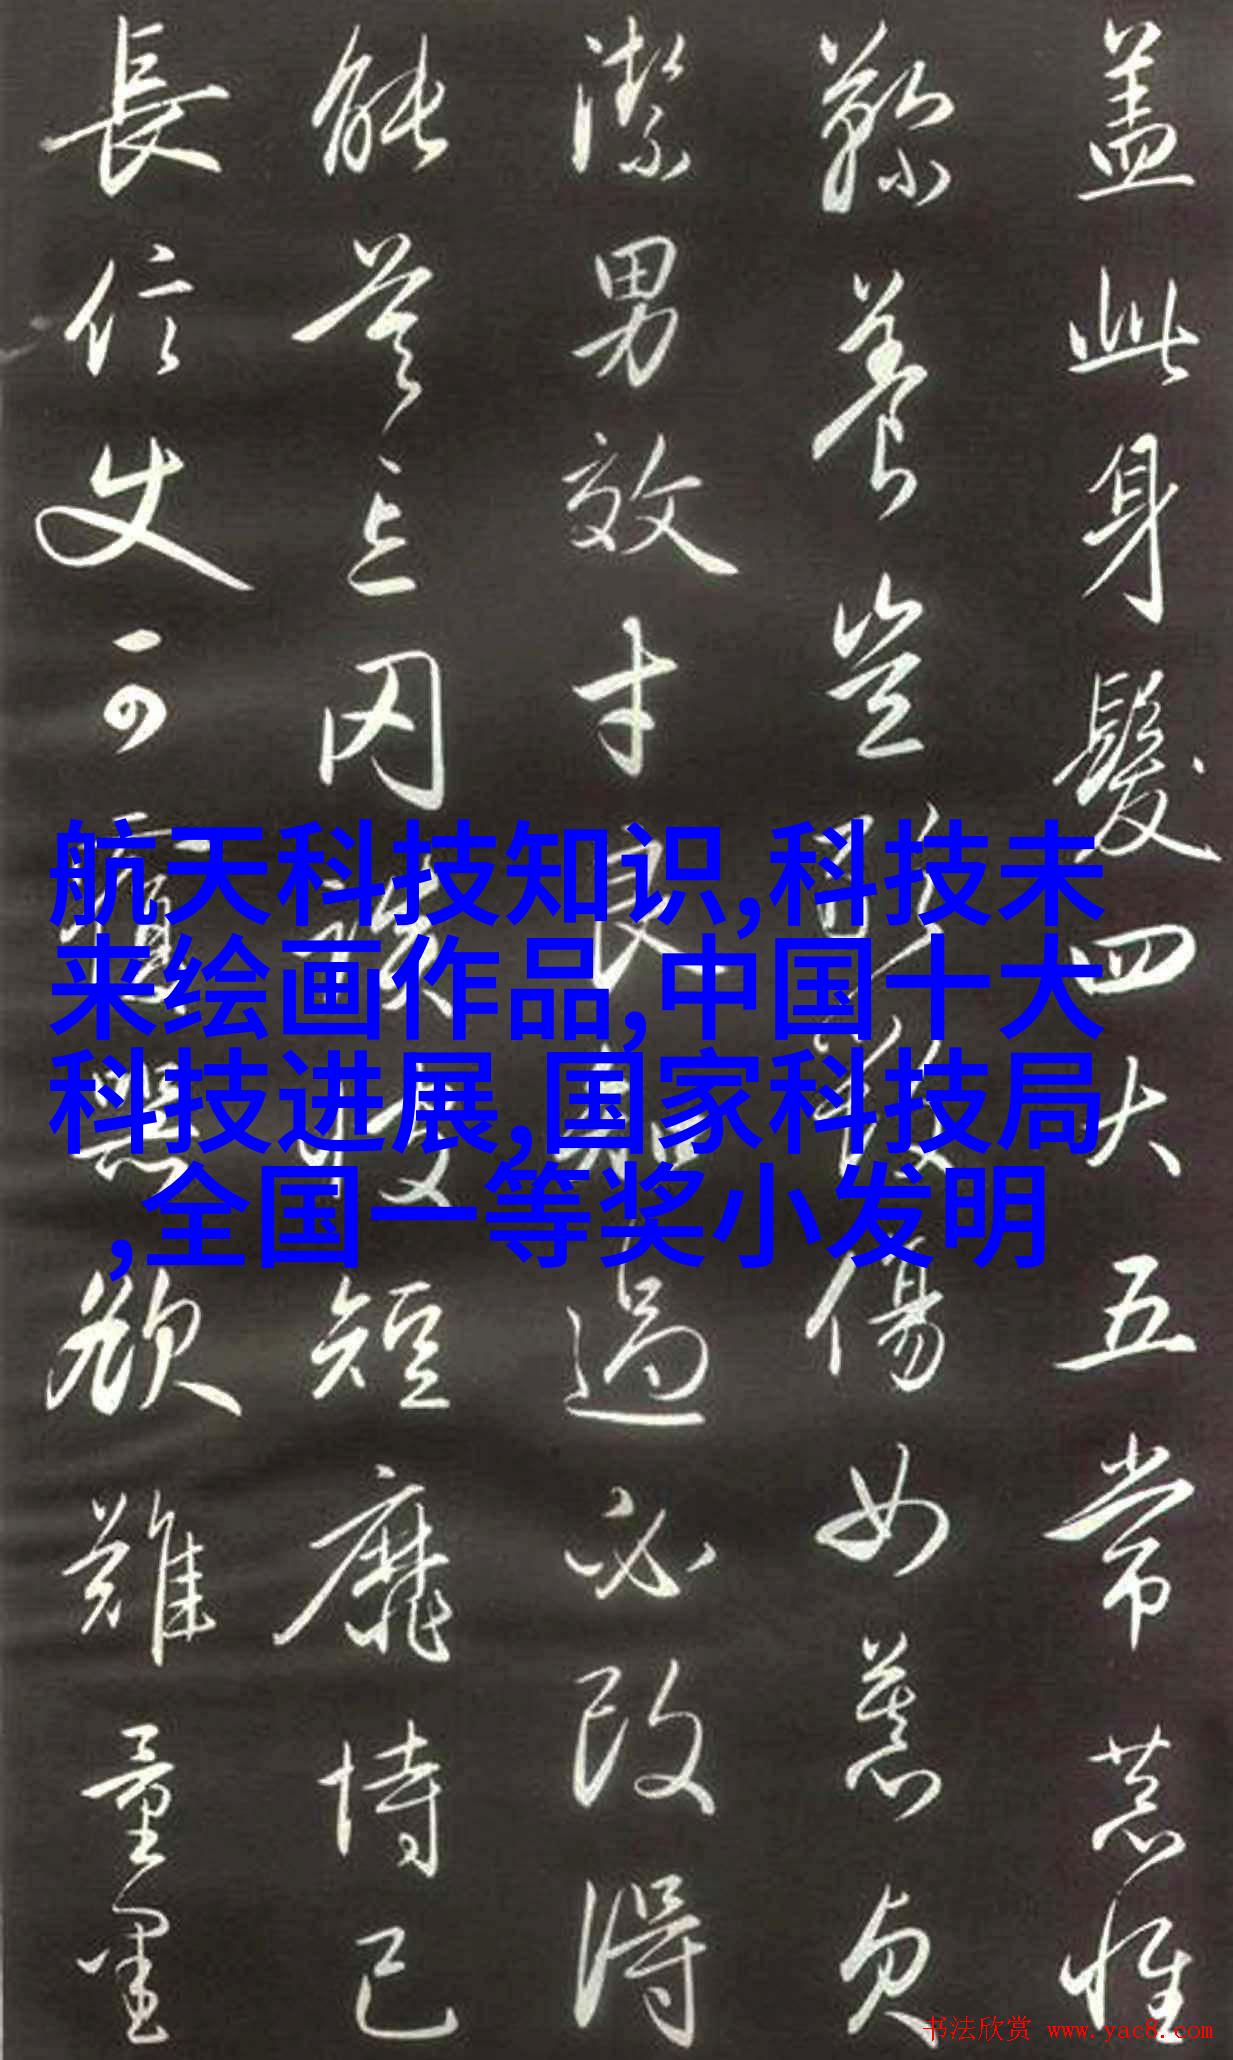 盖此身髮四大五常恭惟
鞠養豈敢毀傷女慕貞
潔男效才良知過必改得
能莫忘罔談彼短靡恃己
長信使可覆器欲難量墨
航天科技知识,科技未
来绘画作品,中国十大
科技进展,国家科技局
,全国一等奖小发明
书法欣赏 www.yac8.com